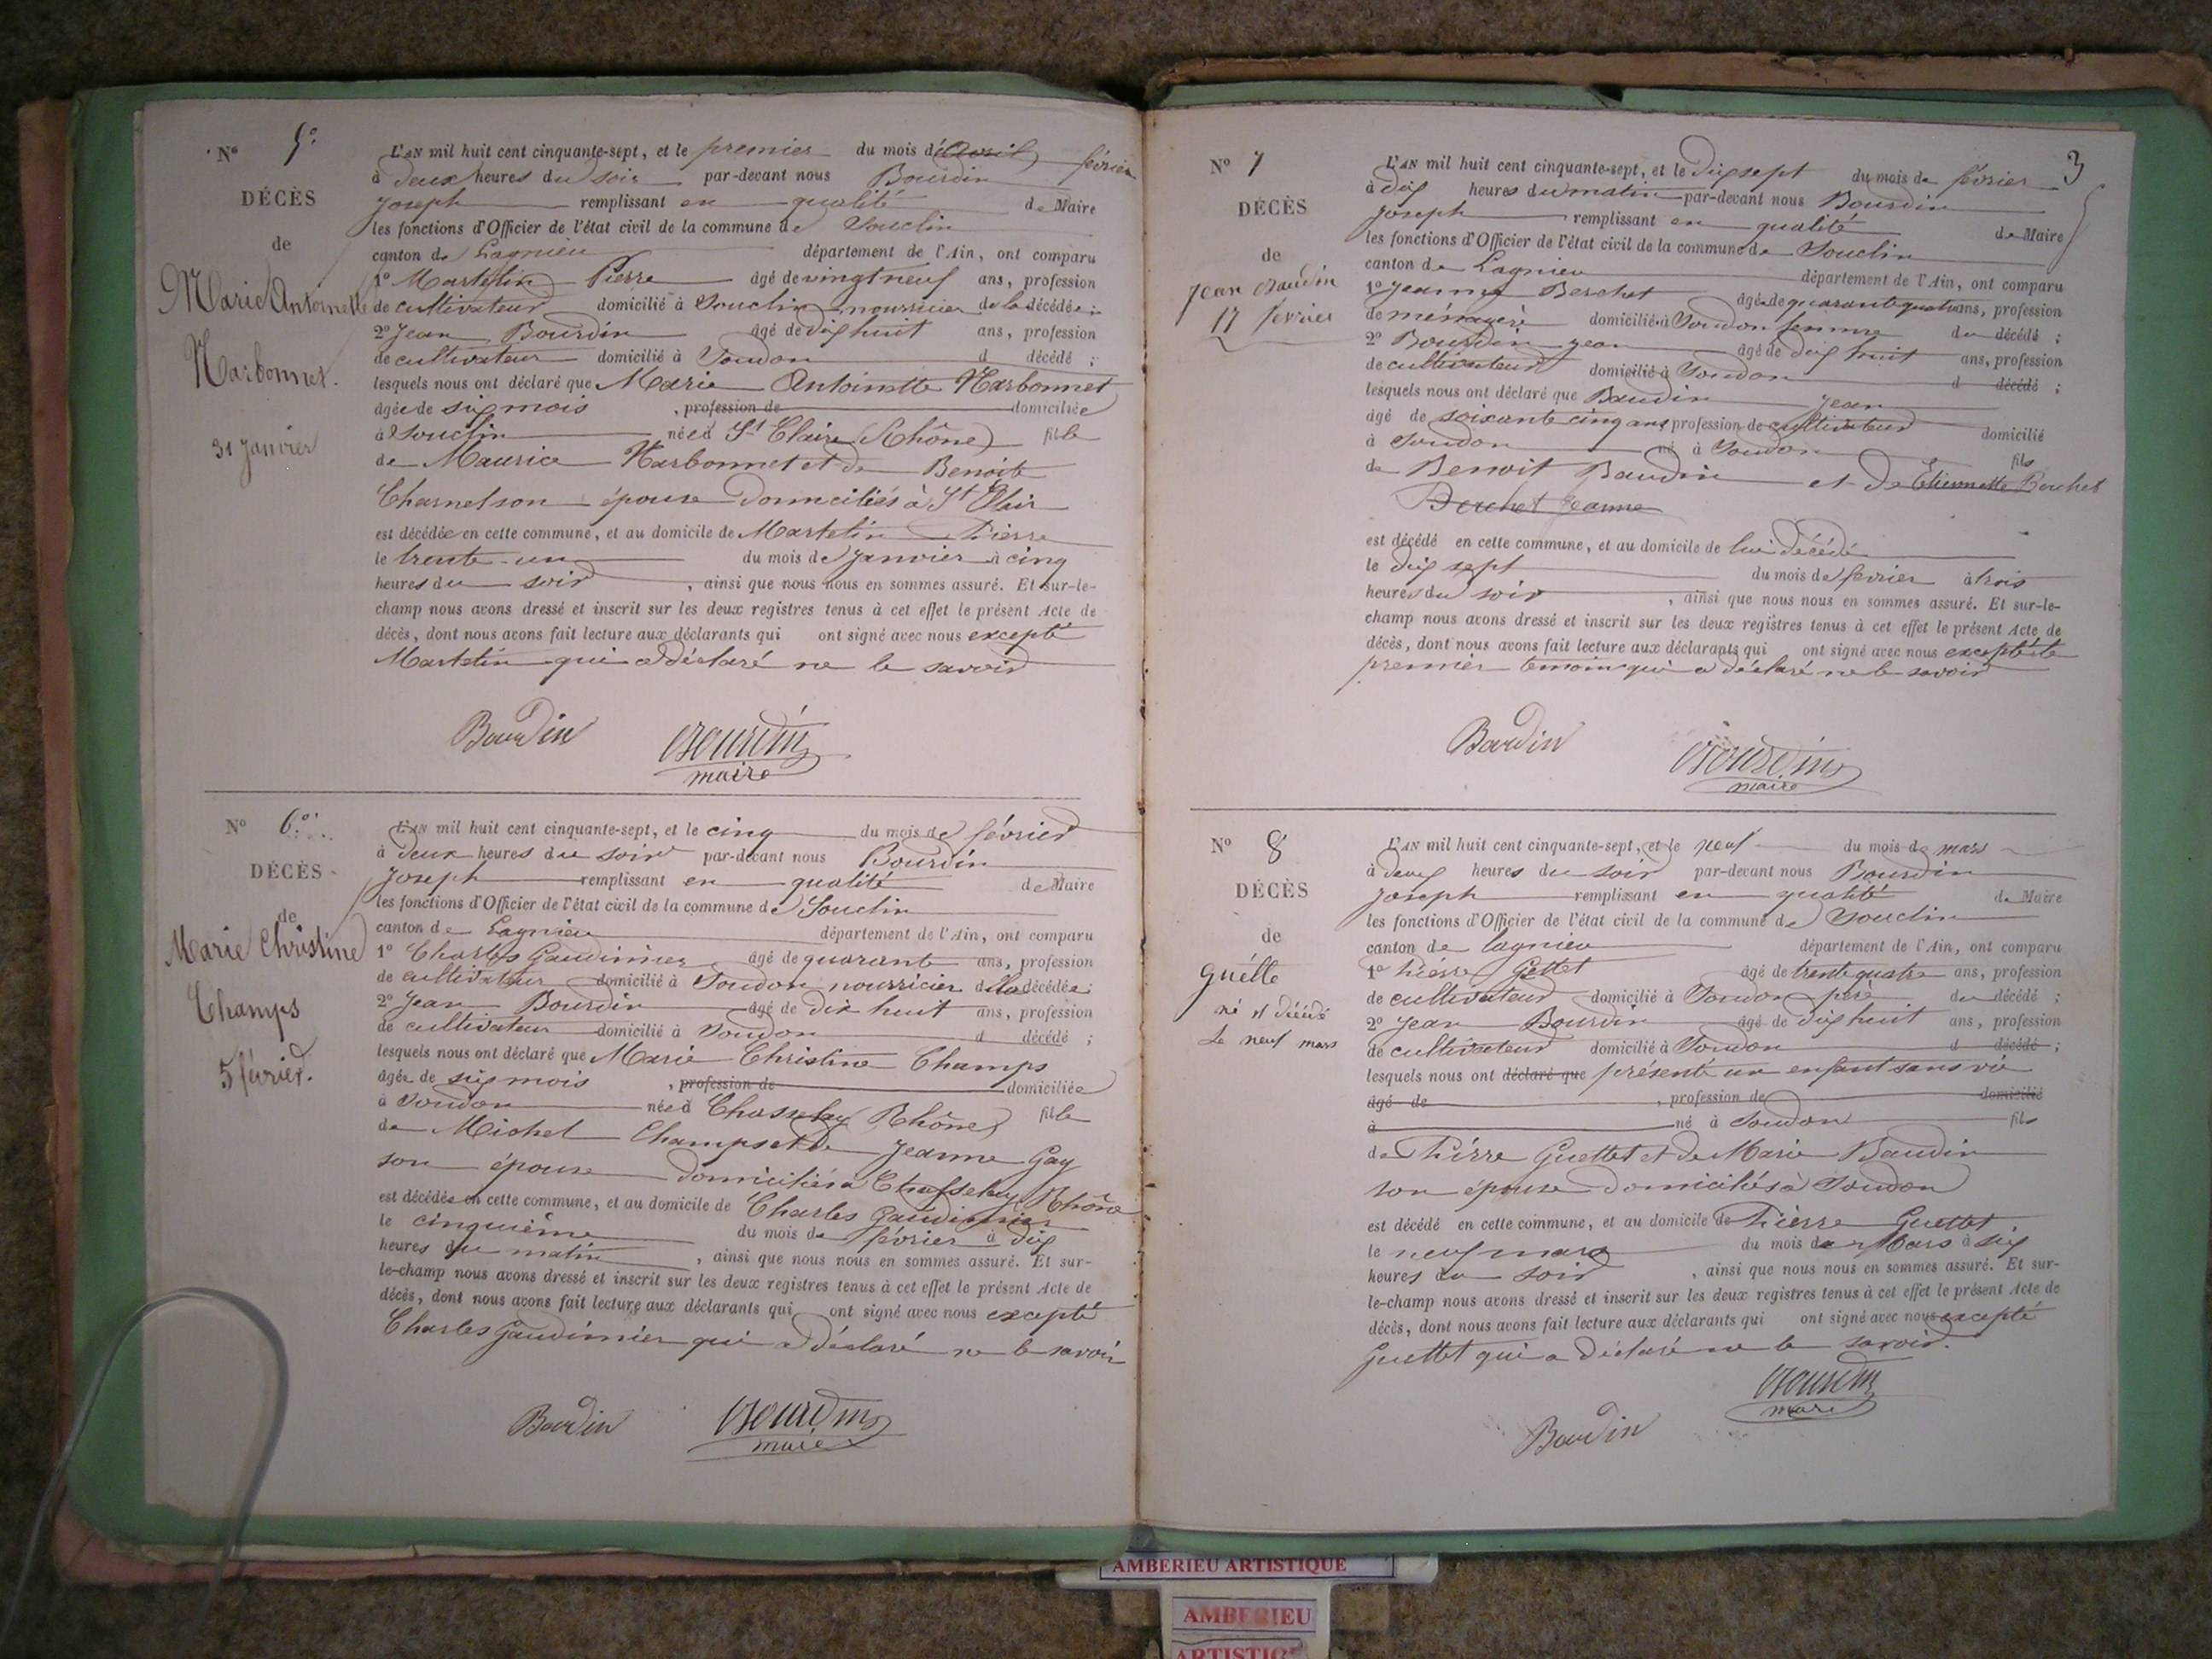 N° 5°
DÉCÈS
de
Marie Antoinette
Narbonnet.
31 Janvier
L'AN mil huit cent cinquante-sept, et le premier du mois d'avril février
à deux heures du soir par-devant nous Bourdin
Joseph remplissant en qualité de Maire
les fonctions d'Officier de l'état civil de la commune de Souclin
canton de Lagnieu département de l'Ain, ont comparu
1° Martelin Pierre âgé de vingt neuf ans, profession
de cultivateur domicilié à Souclin nourricier de la décédée;
2° Jean Bourdin âgé de dix huit ans, profession
de cultivateur domicilié à Soudon d décédé ;
lesquels nous ont déclaré que Marie Antoinette Narbonnet
âgée de six mois , profession de domiciliée
à Souclin née à St Claire (Rhône) fille
de Maurice Narbonnet et de Benoite
Charnel son épouse domiciliés à St Clair
est décédée en cette commune, et au domicile de Martelin Pierre
le trente-un du mois de Janvier à cinq
heures du soir , ainsi que nous nous en sommes assuré. Et sur-le-
champ nous avons dressé et inscrit sur les deux registres tenus à cet effet le présent Acte de
décès, dont nous avons fait lecture aux déclarants qui ont signé avec nous excepté
Martelin qui a déclaré ne le savoir
Bourdin Bourdin
maire
N° 6°
DÉCÈS
de
Marie Christine
Champs
5 février.
L'AN mil huit cent cinquante-sept, et le cinq du mois de février
à deux heures du soir par-devant nous Bourdin
Joseph remplissant en qualité de Maire
les fonctions d'Officier de l'état civil de la commune de Souclin
canton de Lagnieu département de l'Ain, ont comparu
1° Charles Gaudimier âgé de quarante ans, profession
de cultivateur domicilié à Soudon nourricier de la décédée;
2° Jean Bourdin âgé de dix huit ans, profession
de cultivateur domicilié à Soudon d décédé ;
lesquels nous ont déclaré que Marie Christine Champs
âgée de six mois , profession de domiciliée
à Soudon née à Chasselay Rhône fille
de Michel Champs et de Jeanne Gay
son épouse domiciliés à Chasselay Rhône
est décédée en cette commune, et au domicile de Charles Gaudimier
le cinquième du mois de février à dix
heures du matin , ainsi que nous nous en sommes assuré. Et sur-
le-champ nous avons dressé et inscrit sur les deux registres tenus à cet effet le présent Acte de
décès, dont nous avons fait lecture aux déclarants qui ont signé avec nous excepté
Charles Gaudimier qui a déclaré ne le savoir
Bourdin Bourdin
maire
3
N° 7
DÉCÈS
de
Jean Baudin
17 février
L'AN mil huit cent cinquante-sept, et le dix sept du mois de février
à dix heures du matin par-devant nous Bourdin
Joseph remplissant en qualité de Maire
les fonctions d'Officier de l'état civil de la commune de Souclin
canton de Lagnieu département de l'Ain, ont comparu
1° Jeanne Berchet âgé de quarante quatre ans, profession
de ménagère domicilié à Soudon femme du décédé ;
2° Bourdin Jean âgé de dix huit ans, profession
de cultivateur domicilié à Soudon d décédé ;
lesquels nous ont déclaré que Baudin Jean
âgé de soixante cinq ans profession de cultivateur domicilié
à Soudon né à Soudon fils
de Benoit Baudin et de Etiennette Berchet
Berchet Jeanne
est décédé en cette commune, et au domicile de lui décédé
le dix sept du mois de février à trois
heures du soir , ainsi que nous nous en sommes assuré. Et sur-le-
champ nous avons dressé et inscrit sur les deux registres tenus à cet effet le présent Acte de
décès, dont nous avons fait lecture aux déclarants qui ont signé avec nous excepté le
premier témoin qui a déclaré ne le savoir
Bourdin Bourdin
maire
N° 8
DÉCÈS
de
Guétte
né et décédé
Le neuf mars
L'AN mil huit cent cinquante-sept, et le neuf du mois de mars
à deux heures du soir par-devant nous Bourdin
Joseph remplissant en qualité de Maire
les fonctions d'Officier de l'état civil de la commune de Souclin
canton de lagnieu département de l'Ain, ont comparu
1° Pierre Gettet âgé de trente quatre ans, profession
de cultivateur domicilié à Soudon père du décédé ;
2° Jean Bourdin âgé de dix huit ans, profession
de cultivateur domicilié à Soudon d décédé ;
lesquels nous ont déclaré que présenté un enfant sans vie
âgé de , profession de domicilié
à né à Soudon fils
de Pierre Guettet et de Marie Baudin
son épouse domiciliés à Soudon
est décédé en cette commune, et au domicile de Pierre Guettet
le neuf mars du mois de Mars à six
heures du soir , ainsi que nous nous en sommes assuré. Et sur-
le-champ nous avons dressé et inscrit sur les deux registres tenus à cet effet le présent Acte de
décès, dont nous avons fait lecture aux déclarants qui ont signé avec nous excepté
Guettet qui a déclaré ne le savoir.
Bourdin
maire
Bourdin
AMBERIEU ARTISTIQUE
AMBERIEU